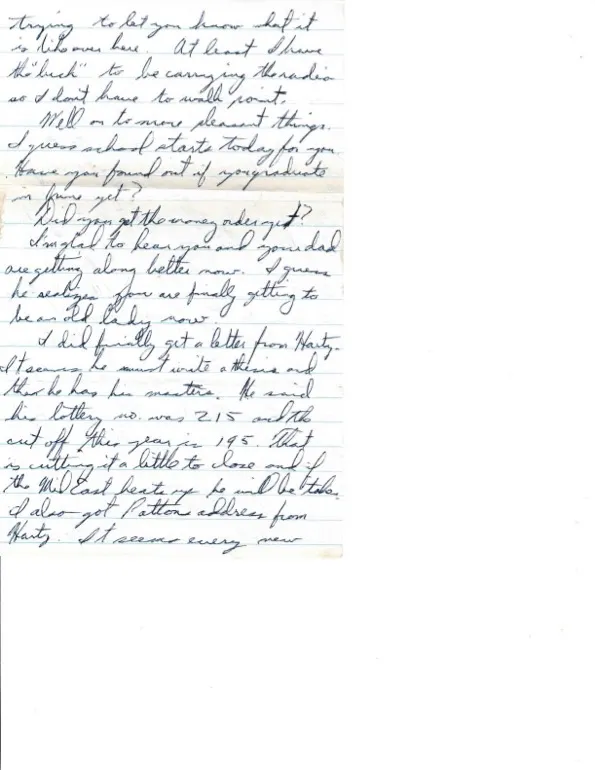 trying to let you know what it
is like over here. At least I have
the "luck" to be carrying the radio
so I don't have to walk point.
Well on to more pleasant things.
I guess school starts today for you.
Have you found out if you graduate
in June yet?
Did you get the money order yet?
I'm glad to hear you and your dad
are getting along better now. I guess
he realizes you are finally getting to
be an old lady now.
I did finally get a letter from Hartz.
It seems he must write a thesis and
then he has his masters. He said
his lottery no. was 215 and the
cut off this year is 195. That
is cutting it a little to close and if
the Mid East heats up he will be take
I also got Pattons address from
Hartz. It seems every new